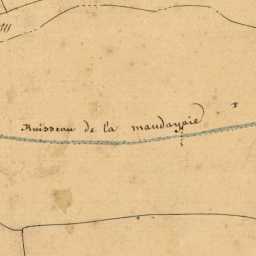 Ruisseau de la maudayoie